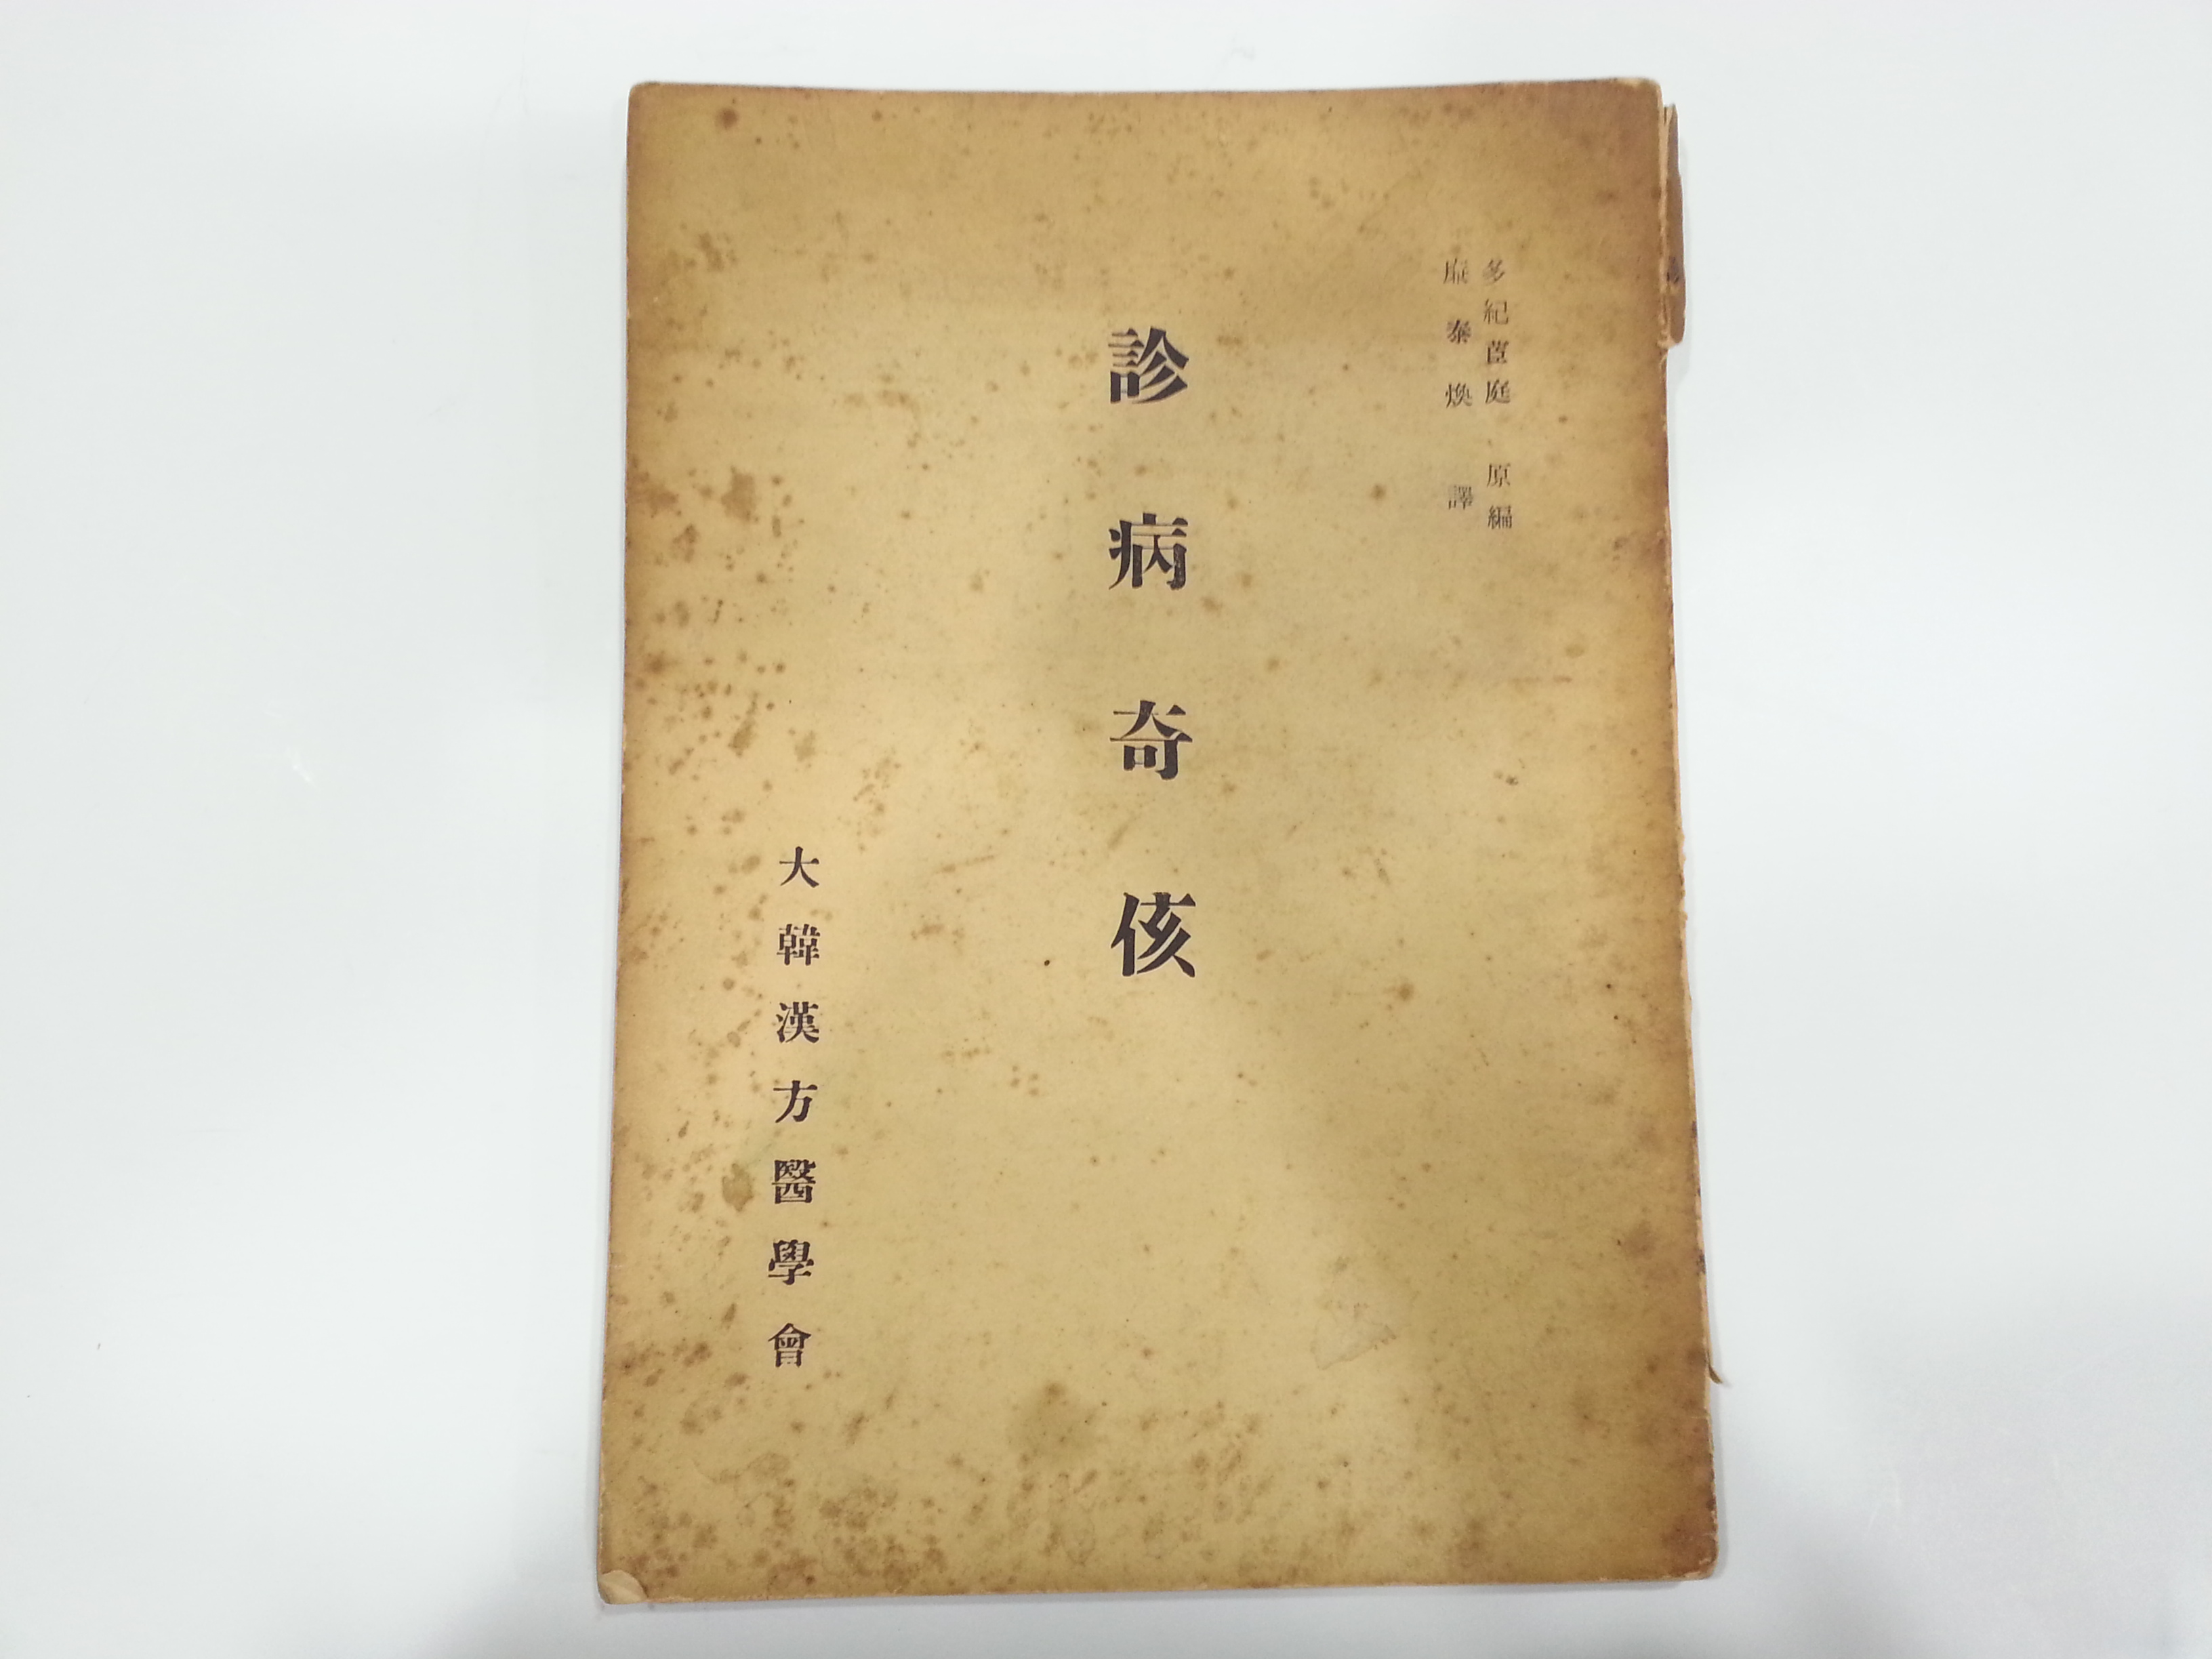 多紀茝庭 原編
泰煥 譯
診病奇侅
大韓漢方醫學會